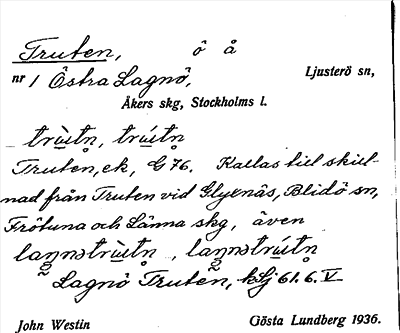 Truten, ö å
nr 1 Östra Lagnö, Ljusterö sn,
Åkers skg, Stockholms l.
trùtn̥, trútn̥
Truten, ek, G 76. Kallas till skill-
nad från Truten vid Glyxnäs, Blidö sn,
Frötuna och Länna skg, även
laŋnətrùtn̥, laŋnətrútn̥
Lagnö Truten, kSj 61.6.V
John Westin Gösta Lundberg 1936.